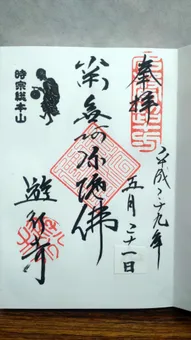 奉拝
平成二十九年
五月二十一日
南無阿弥陀佛
遊行寺
時宗総本山